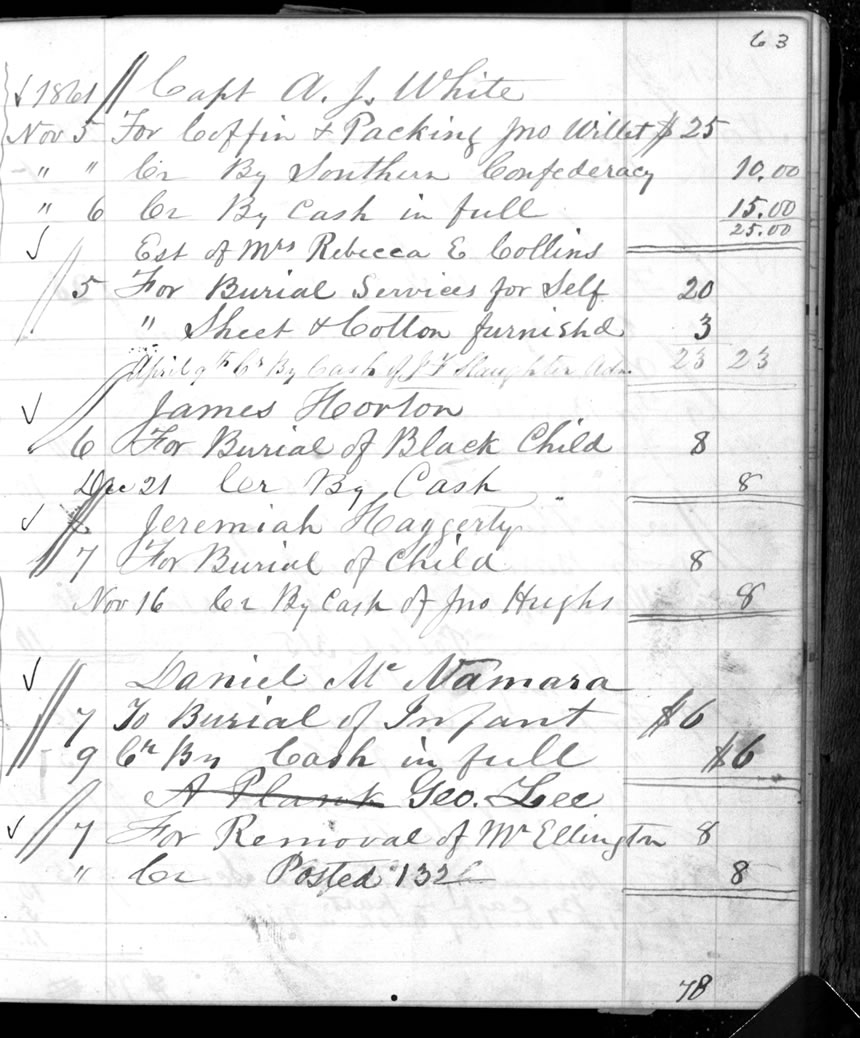 63
1861 Capt A. J. White
Nov 5 For Coffin & Packing Jno Willet $25
" " Cr By Southern Confederacy 10.00
" 6 Cr By Cash in full 15.00
25.00
Est of Mrs Rebecca E Collins
5 For Burial Services for Self 20
" Sheet & Cotton furnishd 3
April 9th Cr By Cash of J F Slaughter Adm 23 23
James Horton
6 For Burial of Black Child 8
Dec 21 Cr By Cash 8
Jeremiah Haggerty
7 For Burial of Child 8
Nov 16 Cr By Cash of Jno Hughs 8
Daniel Mc Namara
7 To Burial of Infant $6
9 Cr By Cash in full $6
A Plank Geo. Lee
7 For Removal of Mr Ellington 8
" Cr Posted 132 8
78